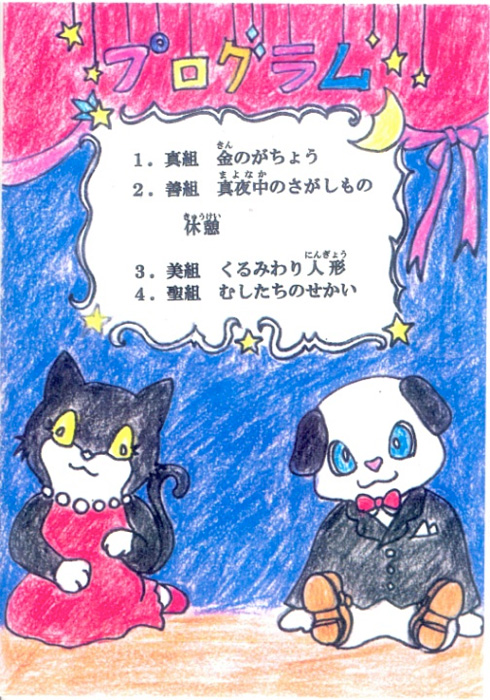 プログラム
1．真組　金のがちょう
2．善組　真夜中のさがしもの
休憩
3．美組　くるみわり人形
4．聖組　むしたちのせかい